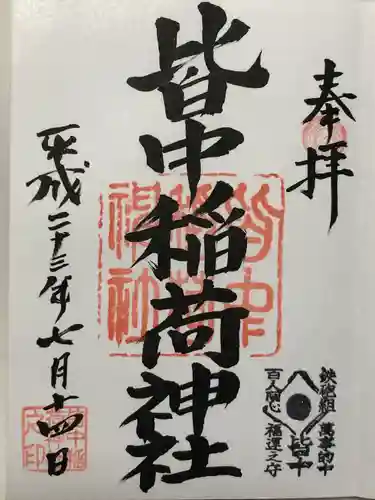 奉拝
皆中稲荷神社
平成二十三年七月十四日
皆中稲荷神社
鉄砲組
百人隊
萬事的中
福運之守
皆中